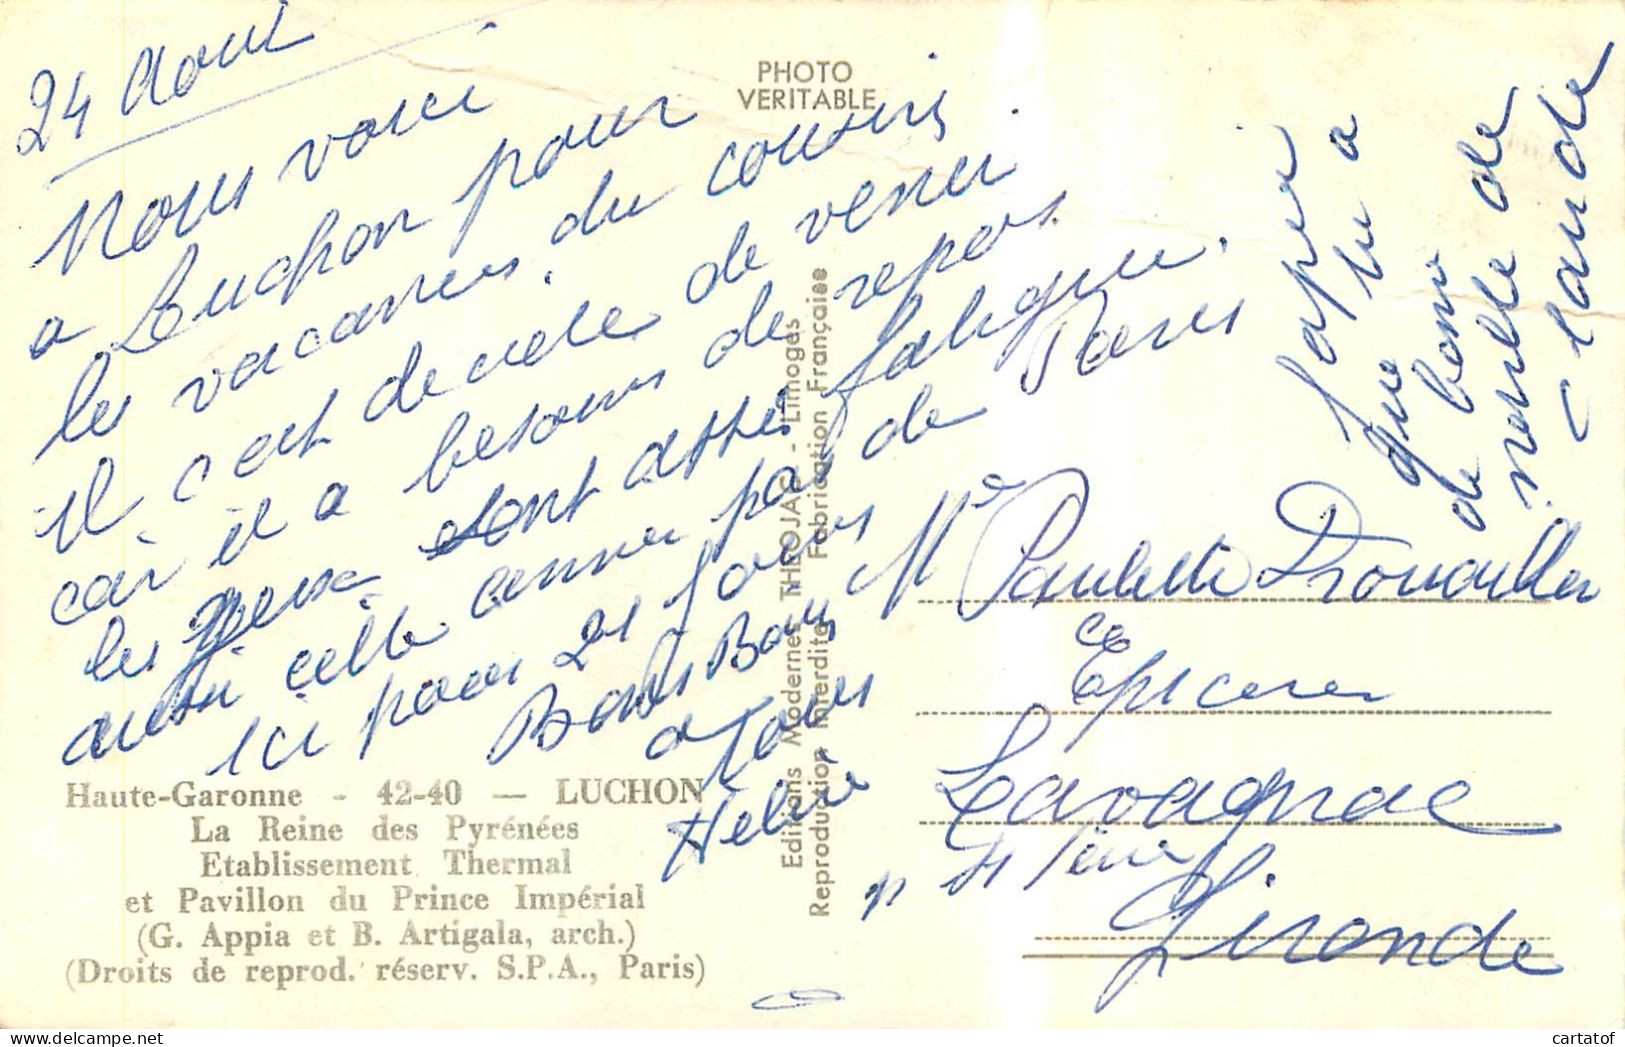 24 Aout
Nous voici
a Luchon pour
les vacances. du cousin
il c'est decide de venir
car il a besoins de repos
les yeux sont asses fatigue.
aussi cette année pas de Paris
ici pour 21 Jours
Bons Bais
a Tous
Helene
PHOTO
VERITABLE
Editions Modernes THEOJAC - Limoges
Reproduction Interdite Fabrication Française
que
de bonne
nouvelle de
Claude
Me Paulette Drouailler
Epicerie
Lavagnac
p St Terre
Gironde
Haute-Garonne - 42-40 — LUCHON
La Reine des Pyrénées
Etablissement Thermal
et Pavillon du Prince Impérial
(G. Appia et B. Artigala, arch.)
(Droits de reprod. réserv. S.P.A., Paris)
cartatof